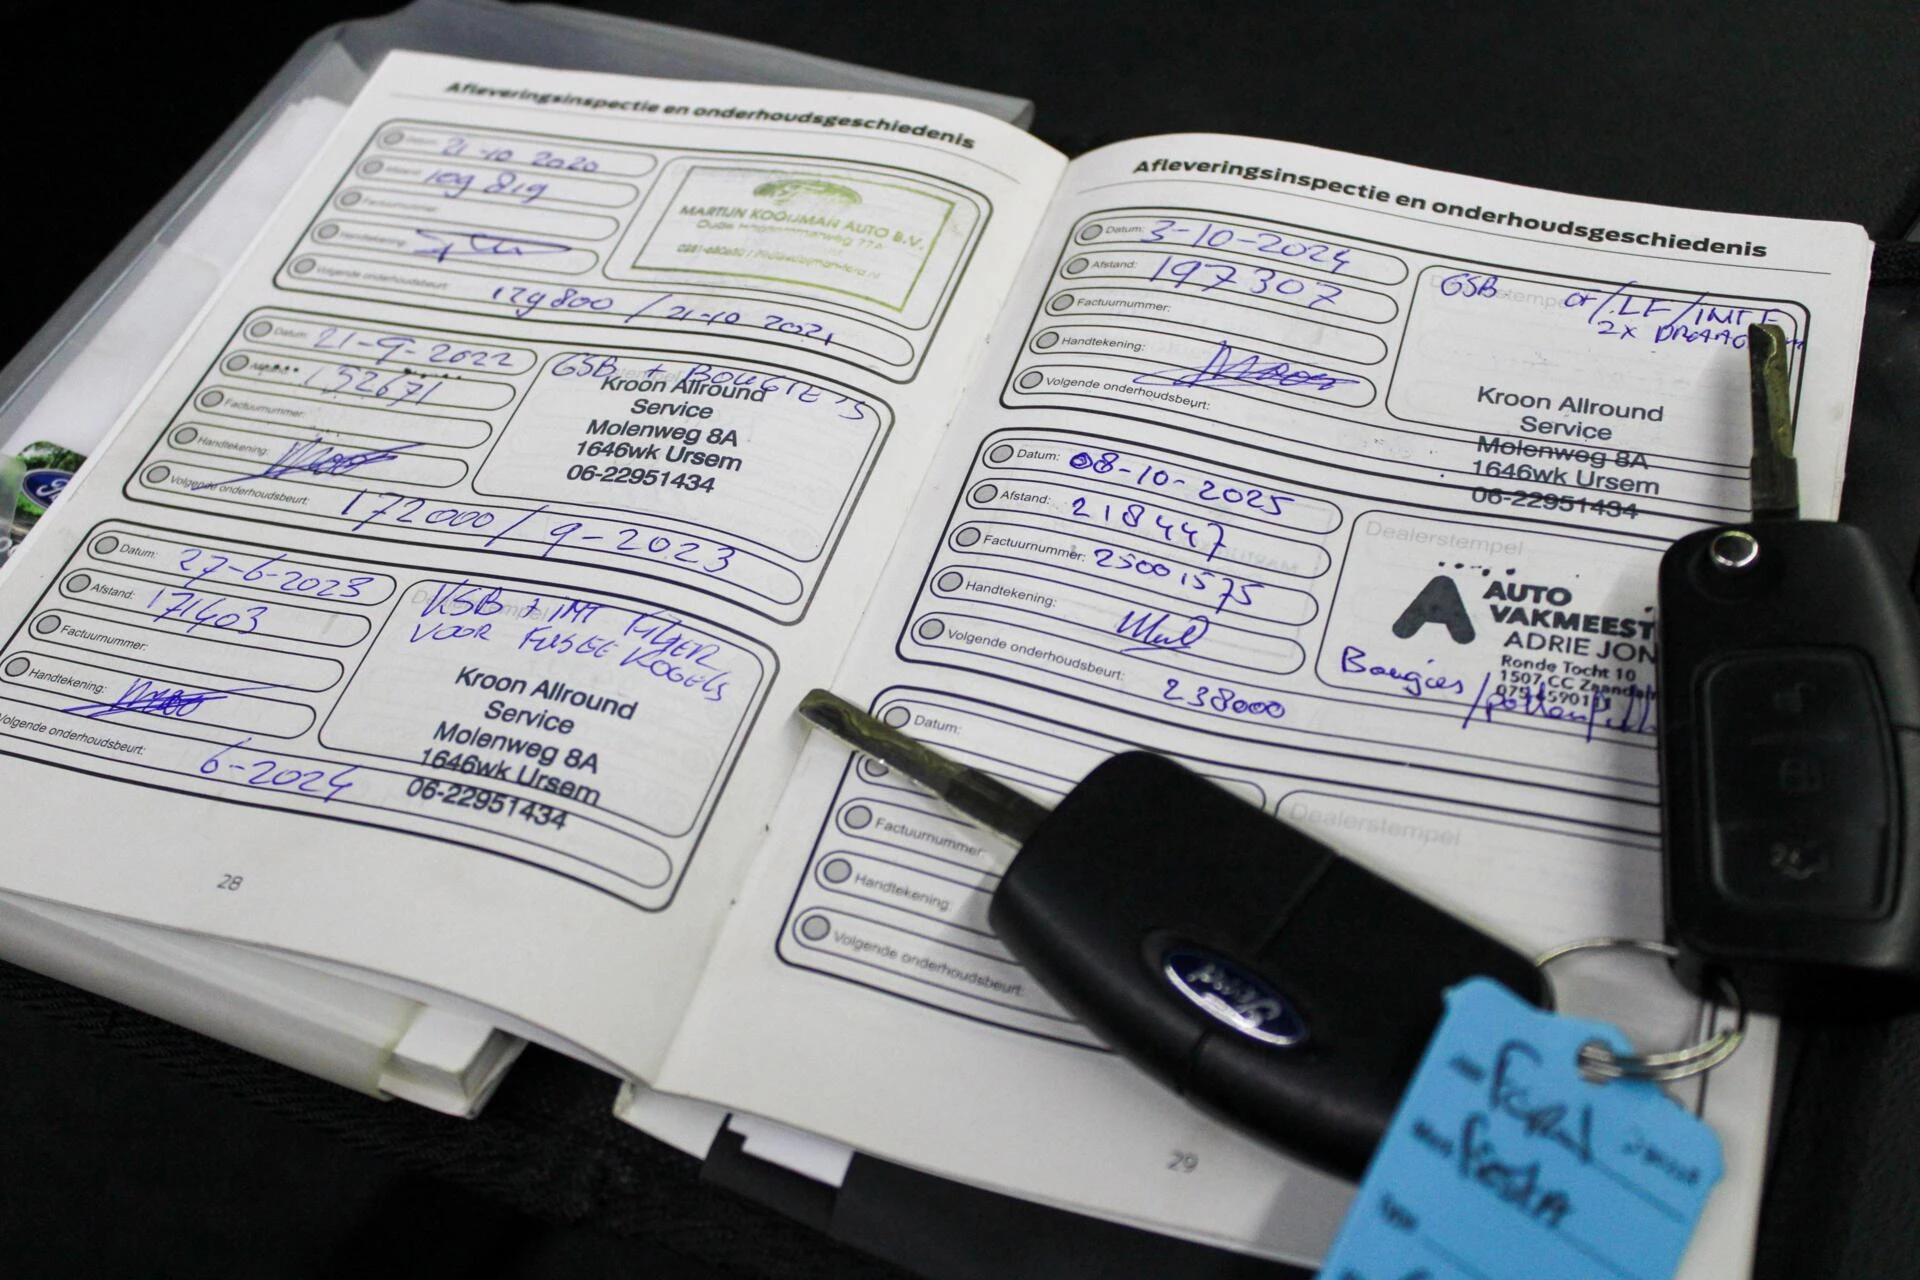 Afleveringsinspectie en onderhoudsgeschiedenis
Datum: 21-10 2020
109 819
Factuurnummer:
Handtekening:
Volgende onderhoudsbeurt:
129800 / 21-10 2021
MARTIJN KOOIJMAN AUTO B.V.
Datum: 21-9-2022
152671
Factuurnummer:
Handtekening:
Volgende onderhoudsbeurt:
172000 / 9-2023
GSB + BOUGIE'S
Kroon Allround
Service
Molenweg 8A
1646wk Ursem
06-22951434
Datum: 27-6-2023
Afstand: 171403
Factuurnummer:
Handtekening:
Volgende onderhoudsbeurt:
6-2024
KSB + IMT FILTER
VOOR FUSEE KOGELS
Kroon Allround
Service
Molenweg 8A
1646wk Ursem
06-22951434
28
Afleveringsinspectie en onderhoudsgeschiedenis
Datum: 3-10-2024
Afstand: 197307
Factuurnummer:
Handtekening:
Volgende onderhoudsbeurt:
GSB
2x
Kroon Allround
Service
Molenweg 8A
1646wk Ursem
06-22951434
Datum: 08-10-2025
Afstand: 218447
Factuurnummer: 25001575
Handtekening:
Volgende onderhoudsbeurt:
238000
Dealerstempel
AUTO
VAKMEEST
ADRIE JON
Ronde Tocht 10
1507 CC Zaandam
Bougies / pollenfilt
Datum:
Factuurnummer:
Handtekening:
Volgende onderhoudsbeurt:
Dealerstempel
29
Ford
Ford
Fiesta